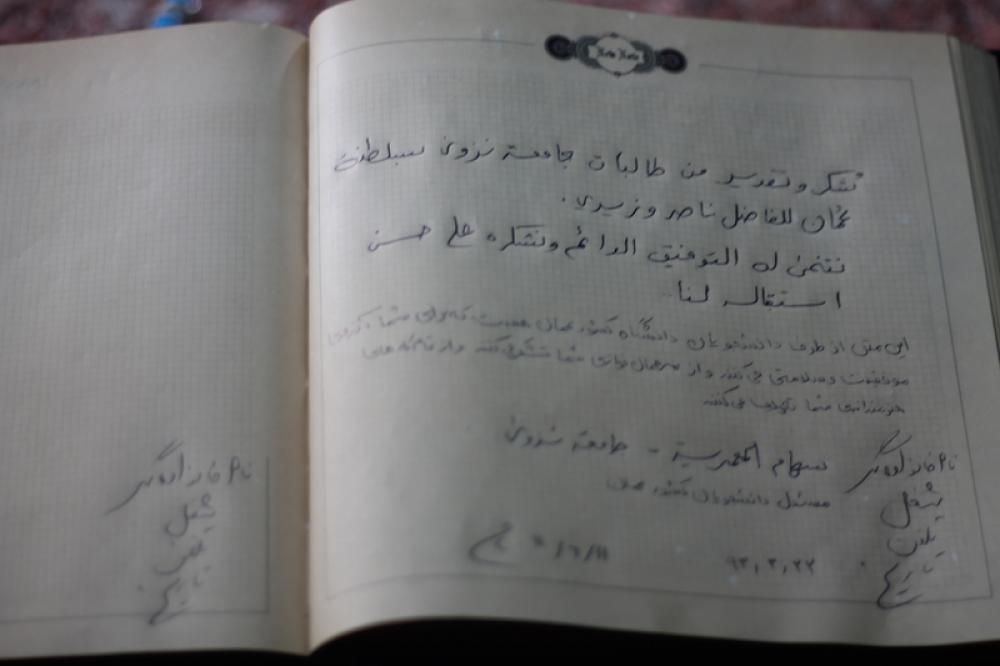 نام خانوادگی
شغل
تلفن
تاریخ
Note Note
شكر وتقدير من طالبات جامعة نزوى بسلطنة
عُمان للفاضل ناصر وزيري.
نتمنى له التوفيق الدائم ونشكره على حسن
استقباله لنا
این متن از طرف دانشجویان دانشگاه کشور عمان هست که برای شما آرزوی
موفقیت وسلامتی می‌کنند و از مهمان نوازی شما تشکر می‌کنند و از
هنرمندی شما تعریف می‌کنند
نام خانوادگی
سهام المعمرية - جامعة نزوى
شغل
مسئول دانشجویان کشور عمان
تلفن
تاریخ
۹۳,۳,۲۲